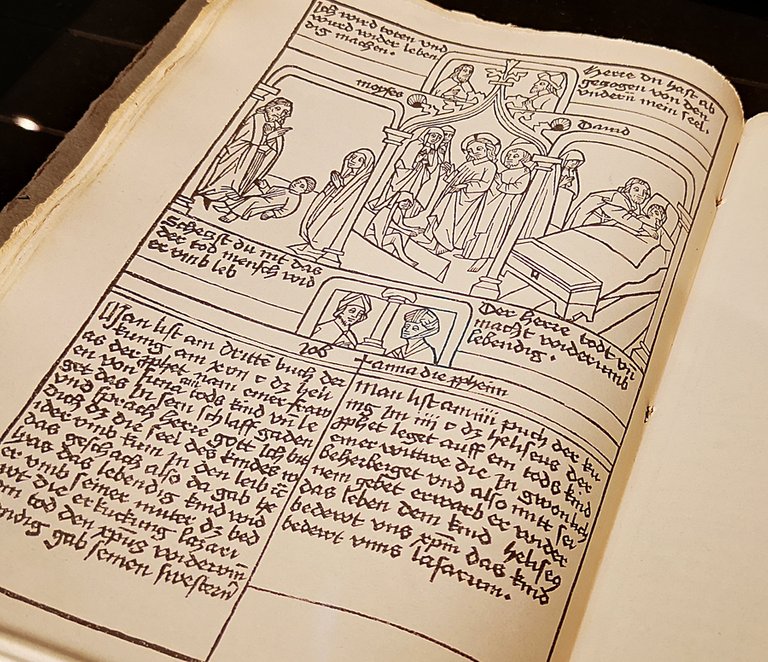 Ich wird toten vnd
wurd wider leben
dig machen.
Herre du hast ab
gezogen von den
vndern mein seel.
moyses
Dauid
Sehest du nit das
der tod mensch wid
er vmb leb
Der herre todt vn̄
macht widerumb
lebendig.
Job
anna die ꝓphetin
Man list am dritten buch der
kung am xvij c dz heli
as der ꝓphet nam einer fraw
en von
get das tods kind vn̄ le
und In sein schlaff gaden
Vnd sprach Herre gott Ich bit
dich dz die seel des kindes w
ider vmb kum in den leib
das geschach also da gab he
er vmb das lebendig kind wid
seiner muter dz bed
ewt die erkuckung lazari
tod den xp̄us widerum̄
lebendig gab seinen swestern
Man list am iiij puch der ku
ng Im iiij c dz heliseus der
ꝓphet leget auff ein tods kind
einer wittwe die in gwonlich
beherberget und also mitt sei
nem gebet erwarb er wider
das leben dem kind heliseꝰ
bedewt vns xp̄m das kind
bedewt vnns lasarum.